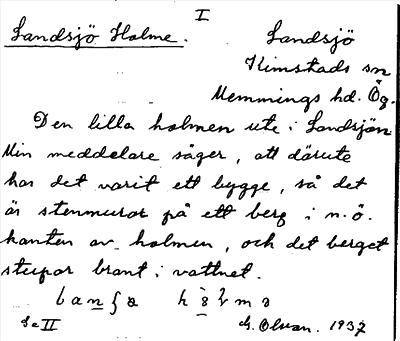 I
Landsjö Holme.
Landsjö
Kimstads sn
Memmings hd. Ög.
Den lilla holmen ute i Landsjön
Min meddelare säger, att därute
har det varit ett bygge, så det
är stenmurar på ett berg i n.ö.
kanten av holmen, och det berget
stupar brant i vattnet.
Se II
G. Olsson. 1937